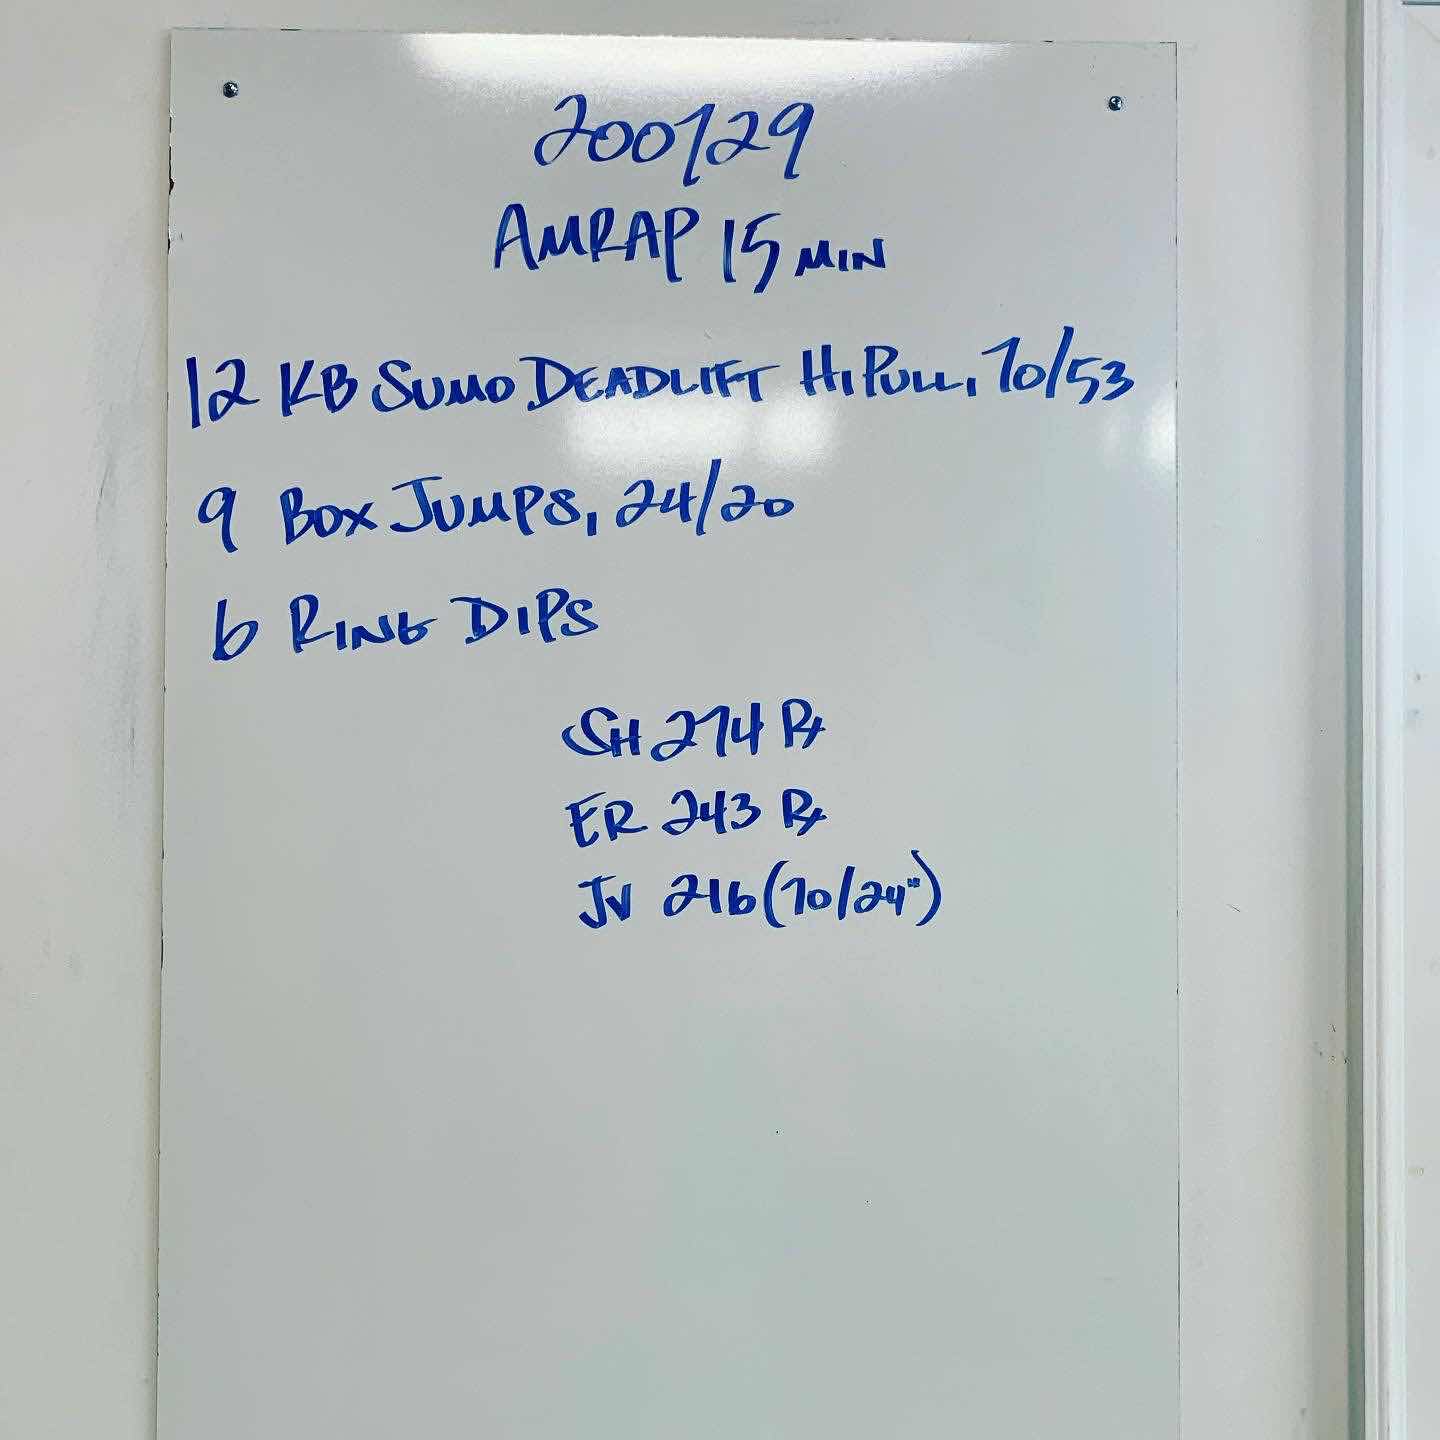 200729
AMRAP 15 MIN
12 KB SUMO DEADLIFT HI PULL, 70/53
9 BOX JUMPS, 24/20
6 RING DIPS
SH 274 Rx
ER 243 Rx
JV 216 (70/24")